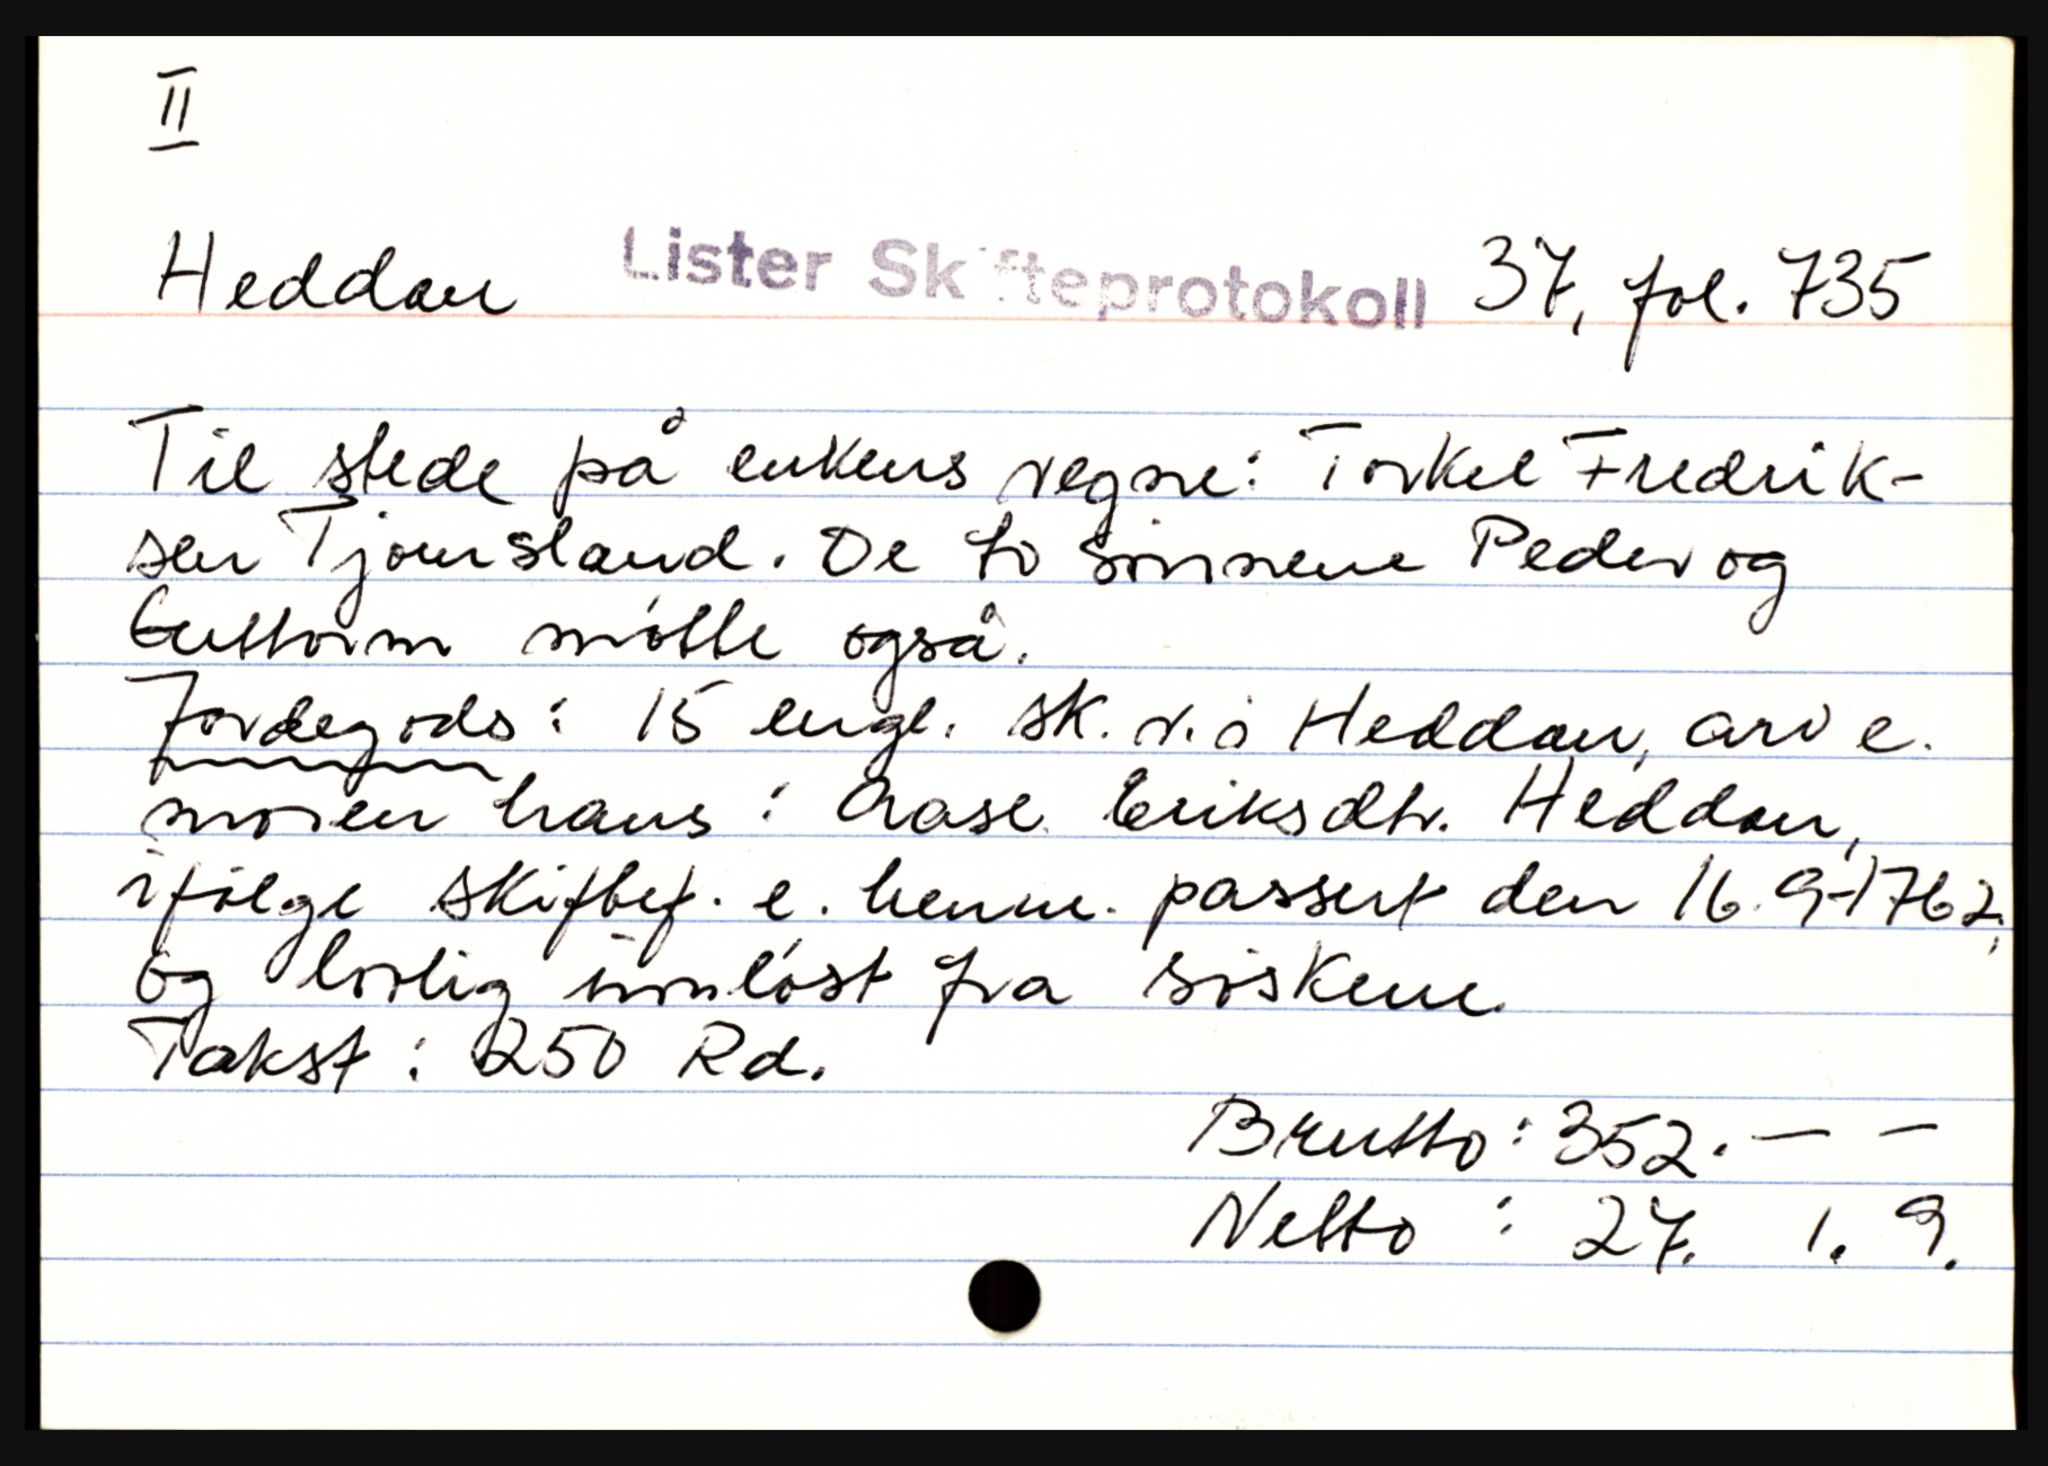 II
Heddan Lister Skifteprotokoll 37, fol. 735
Til stede på enkens vegne: Torkel Fredrik-
sen Tjomsland. De to sønnene Peder og
Guttorm møtte også.
Jordegods: 15 engl. sk. v. i Heddan, arv e.
moren hans: Aase Eriksdtr. Heddan,
ifølge skiftbef. e. henne passert den 16.9-1762,
og lovlig innløst fra søskene.
Takst: 250 Rd.
Brutto: 352. — —
Netto : 27. 1. 9.